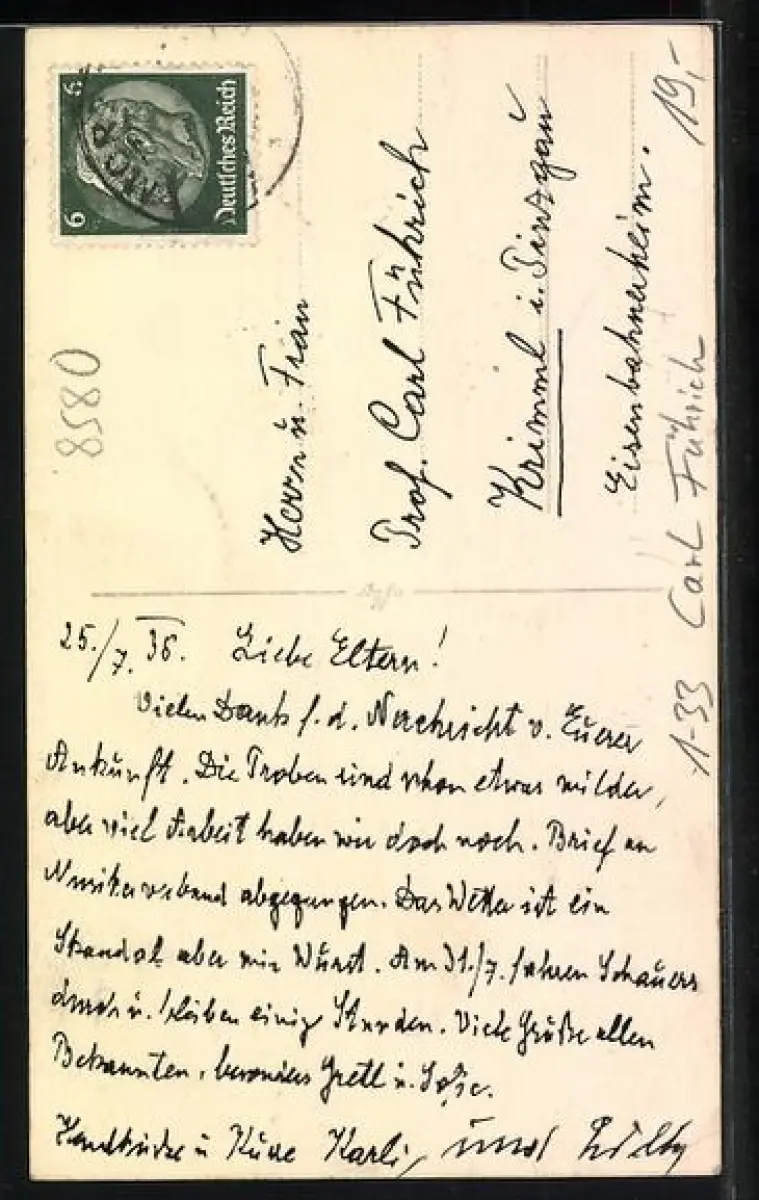 6 6
Deutsches Reich
8580
19,-
Herrn u. Frau
Prof. Carl Führich
Krimml i. Pinzgau
Eisenbahnerheim.
1-33 Carl Führich
25./7. 36. Liebe Eltern!
Vielen Dank f. d. Nachricht v. Eurer
Ankunft. Die Proben sind schon etwas milder,
aber viel Arbeit haben wir doch noch. Brief an
Musikerverband abgegangen. Das Wetter ist ein
Skandal aber mir Wurst. Am 31./7. fahren Schauers
durch u. bleiben einige Stunden. Viele Grüße allen
Bekannten, besonders Gretl u.
Handküsse u Küsse Karli, und